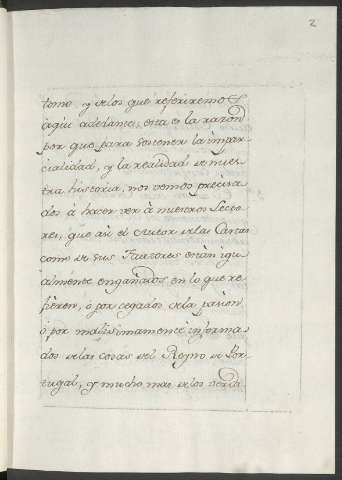 2
tomo, y de los que referiremos
aqui adelante, esta es la razon
por que para sostener la impar-
cialidad, y la realidad de nues-
tra historia, nos vemos precisa-
dos à hacer ver à nuestros Lecto-
res, que asi el Autor de las Cartas
como de sus Fautores están igu-
almente engañados en lo que re-
fieren, ó por cegados de la pasion
ó por malisimamente informa-
dos de las cosas del Reyno de Por-
tugal, y mucho mas de los